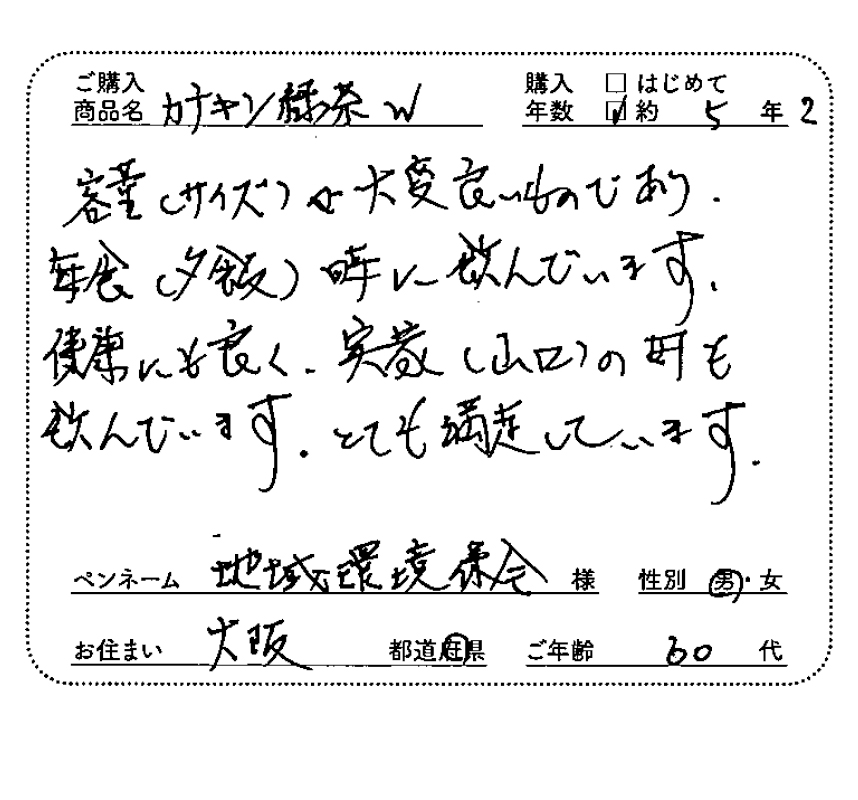 ご購入
商品名 カテキン緑茶W
購入 □ はじめて
年数 ☑ 約 5 年 2
容量(サイズ)は大変良いものであり.
毎食(夕飯)時に飲んでいます.
健康にも良く.実家(山口)の母も
飲んでいます.とても満足しています.
ペンネーム 地域環境保全 様 性別 男・女
お住まい 大阪 都道府県 ご年齢 60 代